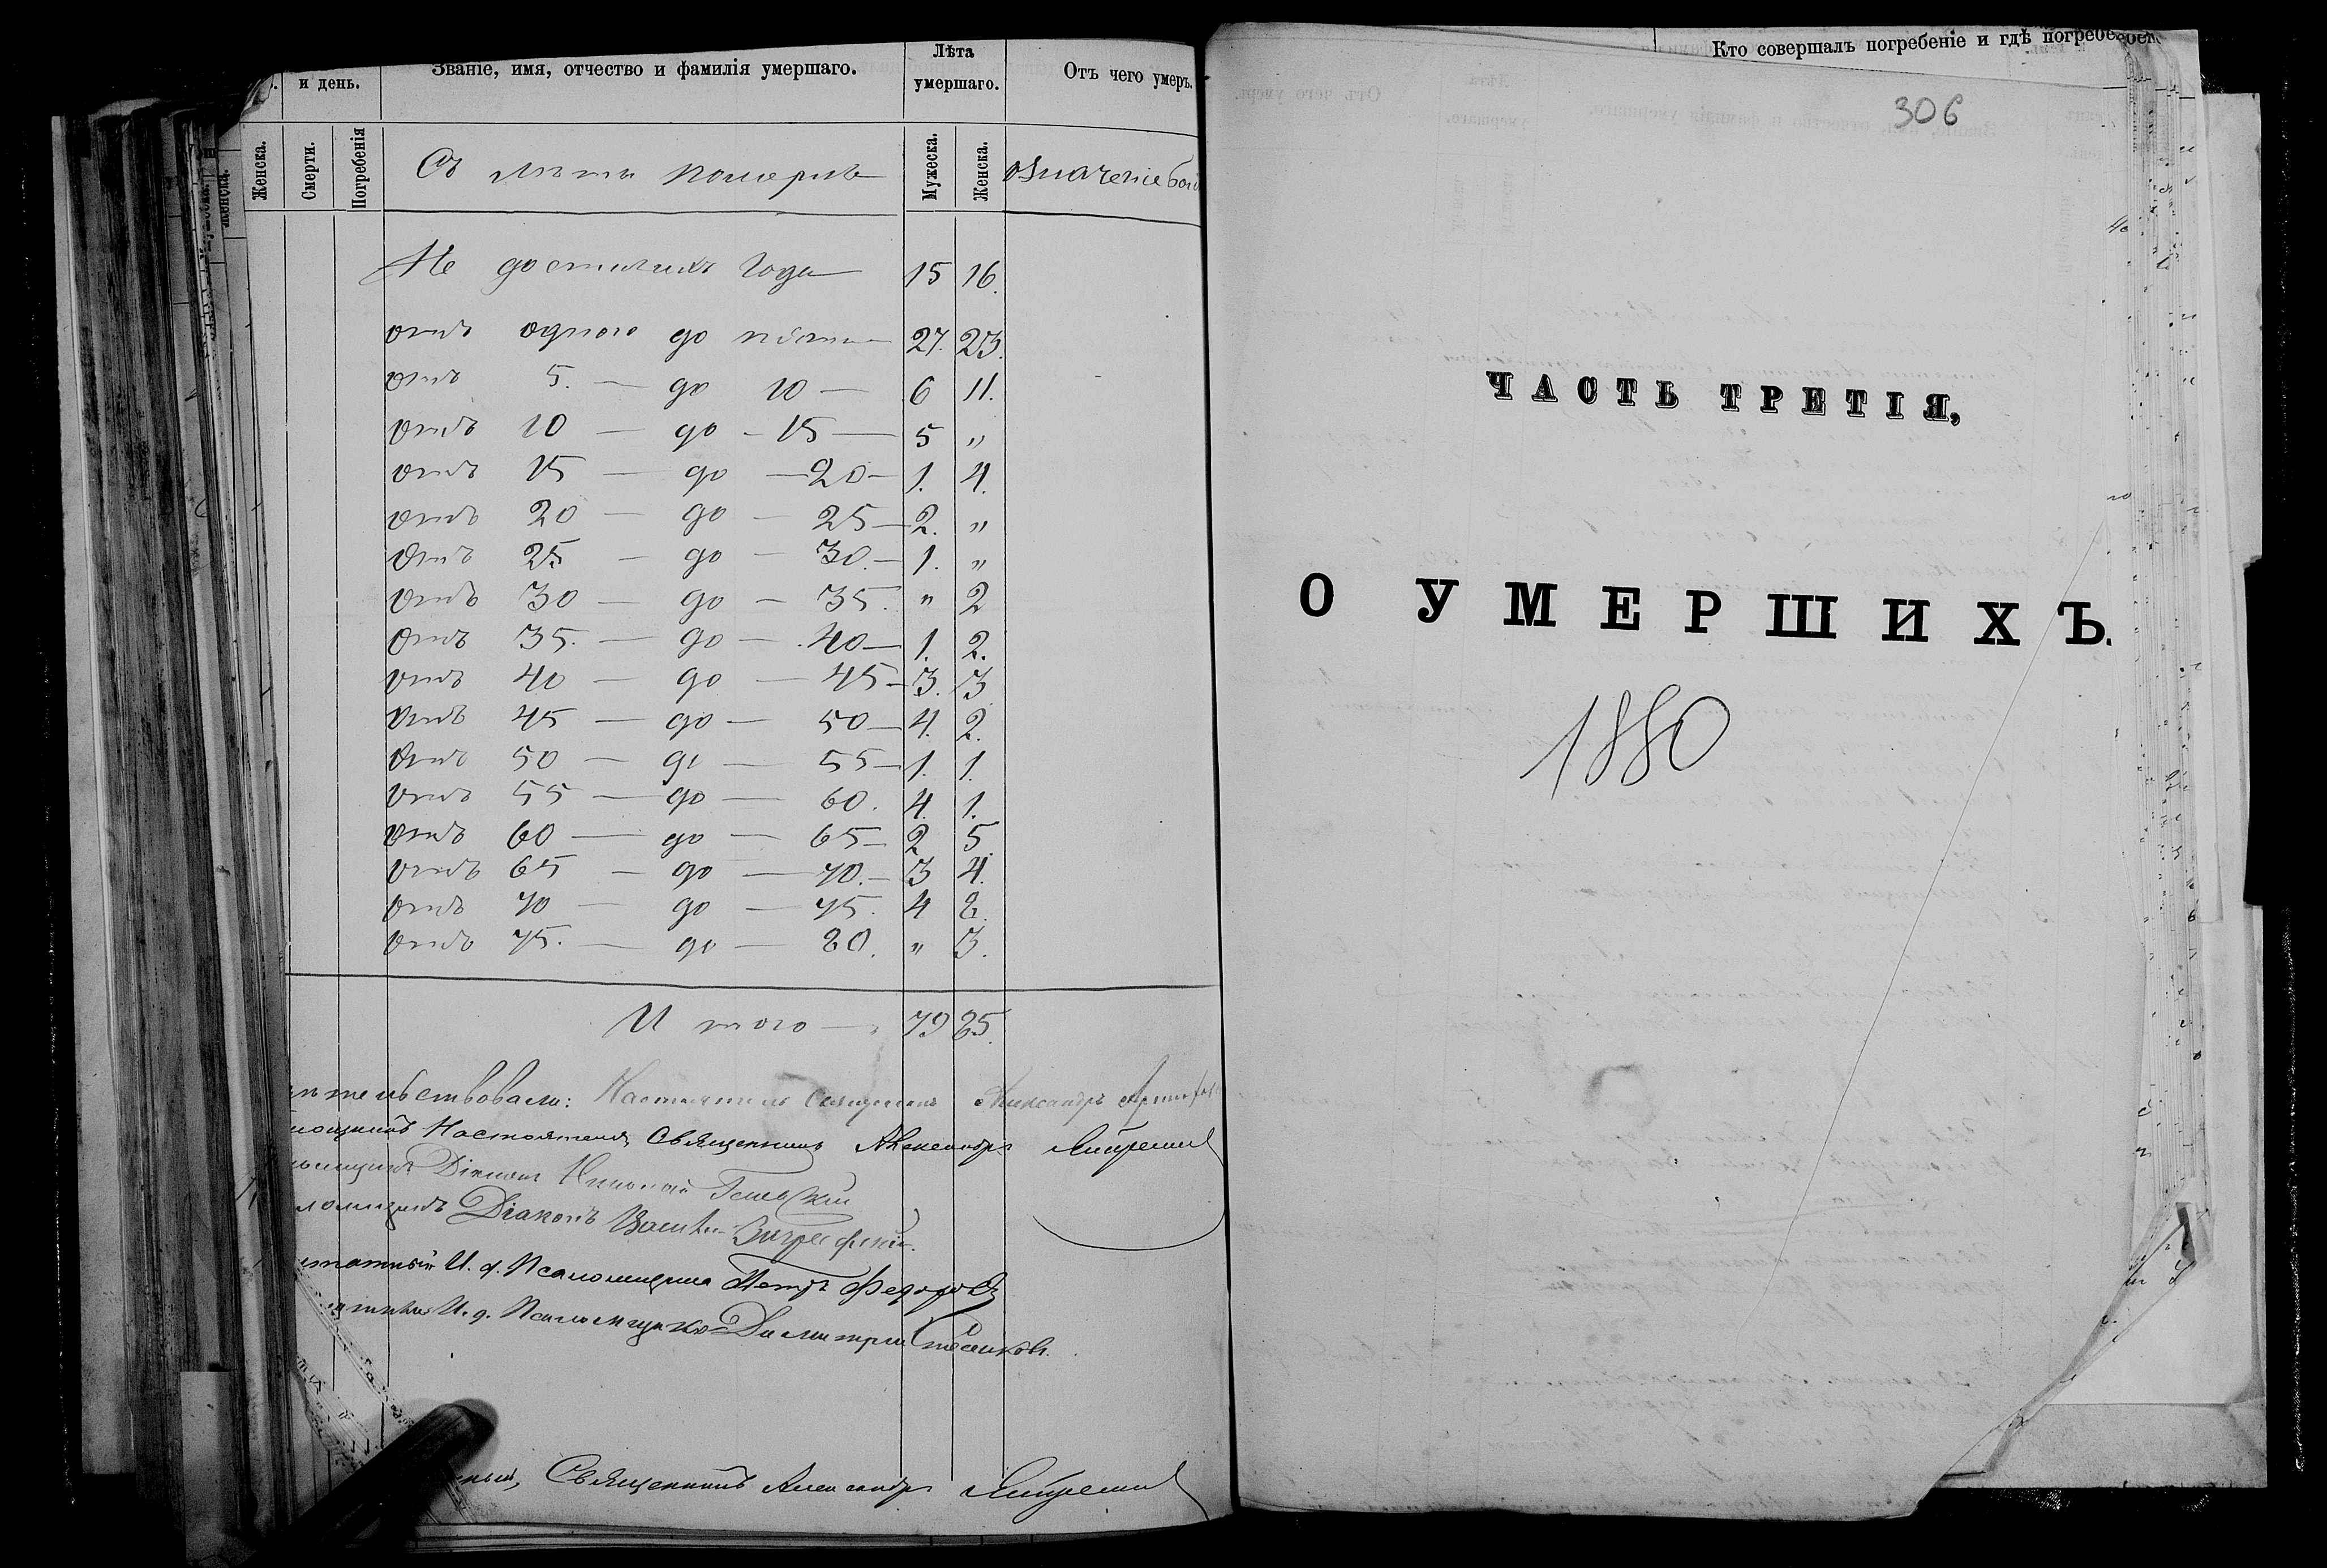 и день.
Званіе, имя, отчество и фамилія умершаго.
Лѣта умершаго.
Отъ чего умеръ.
Женска.
Смерти.
Погребенія
Мужеска.
Женска.
Не достигшихъ года 15 16.
отъ одного до пяти 27. 23.
отъ 5. — до 10 — 6 11.
отъ 10 — до — 15 — 5 „
отъ 15 — до — 20 — 1. 4.
отъ 20 — до — 25 — 2. „
отъ 25 — до — 30. — 1. „
отъ 30 — до — 35. „ 2
отъ 35. — до — 40 — 1. 2.
отъ 40 — до — 45 — 3. 3
отъ 45 — до — 50 — 4. 2.
отъ 50 — до — 55 — 1. 1.
отъ 55 — до — 60. 4. 1.
отъ 60 — до — 65 — 2 5.
отъ 65 — до — 70. — 3 4.
отъ 70 — до — 75. 4 8.
отъ 75. — до — 80. „ 3.
Итого — 79 85.
Настоятель Священникъ Александръ
Настоятеля Священникъ Александръ
Діаконъ Николай
Діаконъ
И. д. Псаломщика Петръ Федоровъ
И. д. Псаломщика Димитрій
Священникъ Александръ
Кто совершалъ погребеніе и гдѣ
306
ЧАСТЬ ТРЕТІЯ,
О УМЕРШИХЪ.
1880